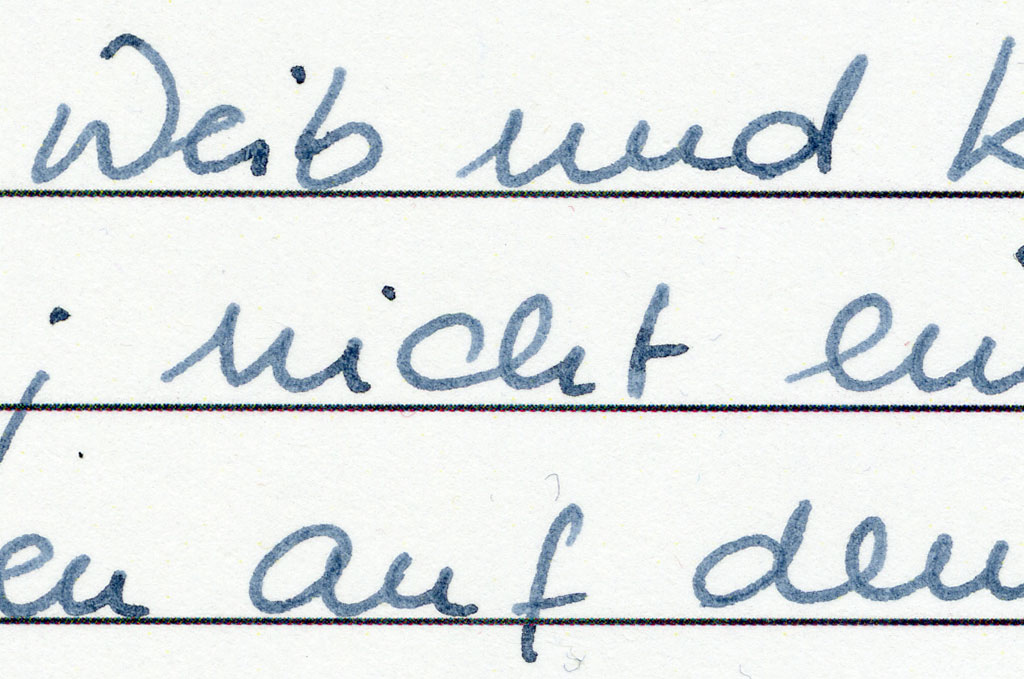 Weib und k
nicht ein
en auf den